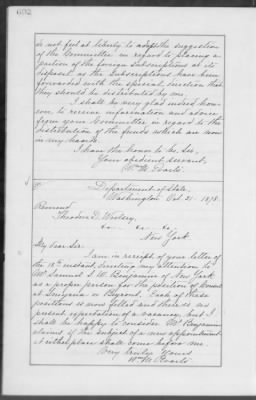 692
do not feel at liberty to adopt the suggestion
of the Committee in regard to placing a
portion of the foreign subscriptions at its
disposal as the subscriptions have been
forwarded with the special direction that
they should be distributed by me.
I shall be very glad indeed how-
ever, to receive information and advice
from your Committee in regard to the
distribution of the funds which are now
in my hands.
I have the honor to be, Sir,
Your obedient servant,
Wm M. Evarts
Department of State,
Washington Oct. 21. 1878.
Reverend
Theodore D. Woolsey,
New York.
My dear Sir:
I am in receipt of your letter of
the 18th instant inviting my attention to
Mr Samuel S. W. Benjamin of New York
as a proper person for the position of Consul
at Smyrna or Beyrout. Each of these
positions is now filled and there is no
present expectation of a vacancy, but I
shall be happy to consider Mr Benjamin's
claims if the subject of a new appointment
at either place shall come before me.
Very truly Yours
Wm M. Evarts